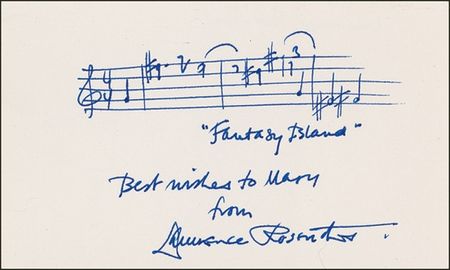 "Fantasy Island"
Best wishes to Mary
from
Laurence Rosenthal